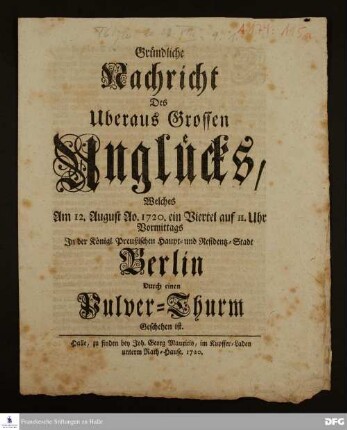 Gründliche
Nachricht
Des
Uberaus Grossen
Unglücks,
Welches
Am 12. August Ao. 1720. ein Viertel auf 11. Uhr
Vormittags
In der Königl. Preußischen Haupt- und Residentz-Stadt
Berlin
Durch einen
Pulver-Thurm
Geschehen ist.
Halle, zu finden bey Joh. Georg in Kupffer-Laden
unterm Rath-Hause. 1720.
Franckesche Stiftungen zu Halle
DFG